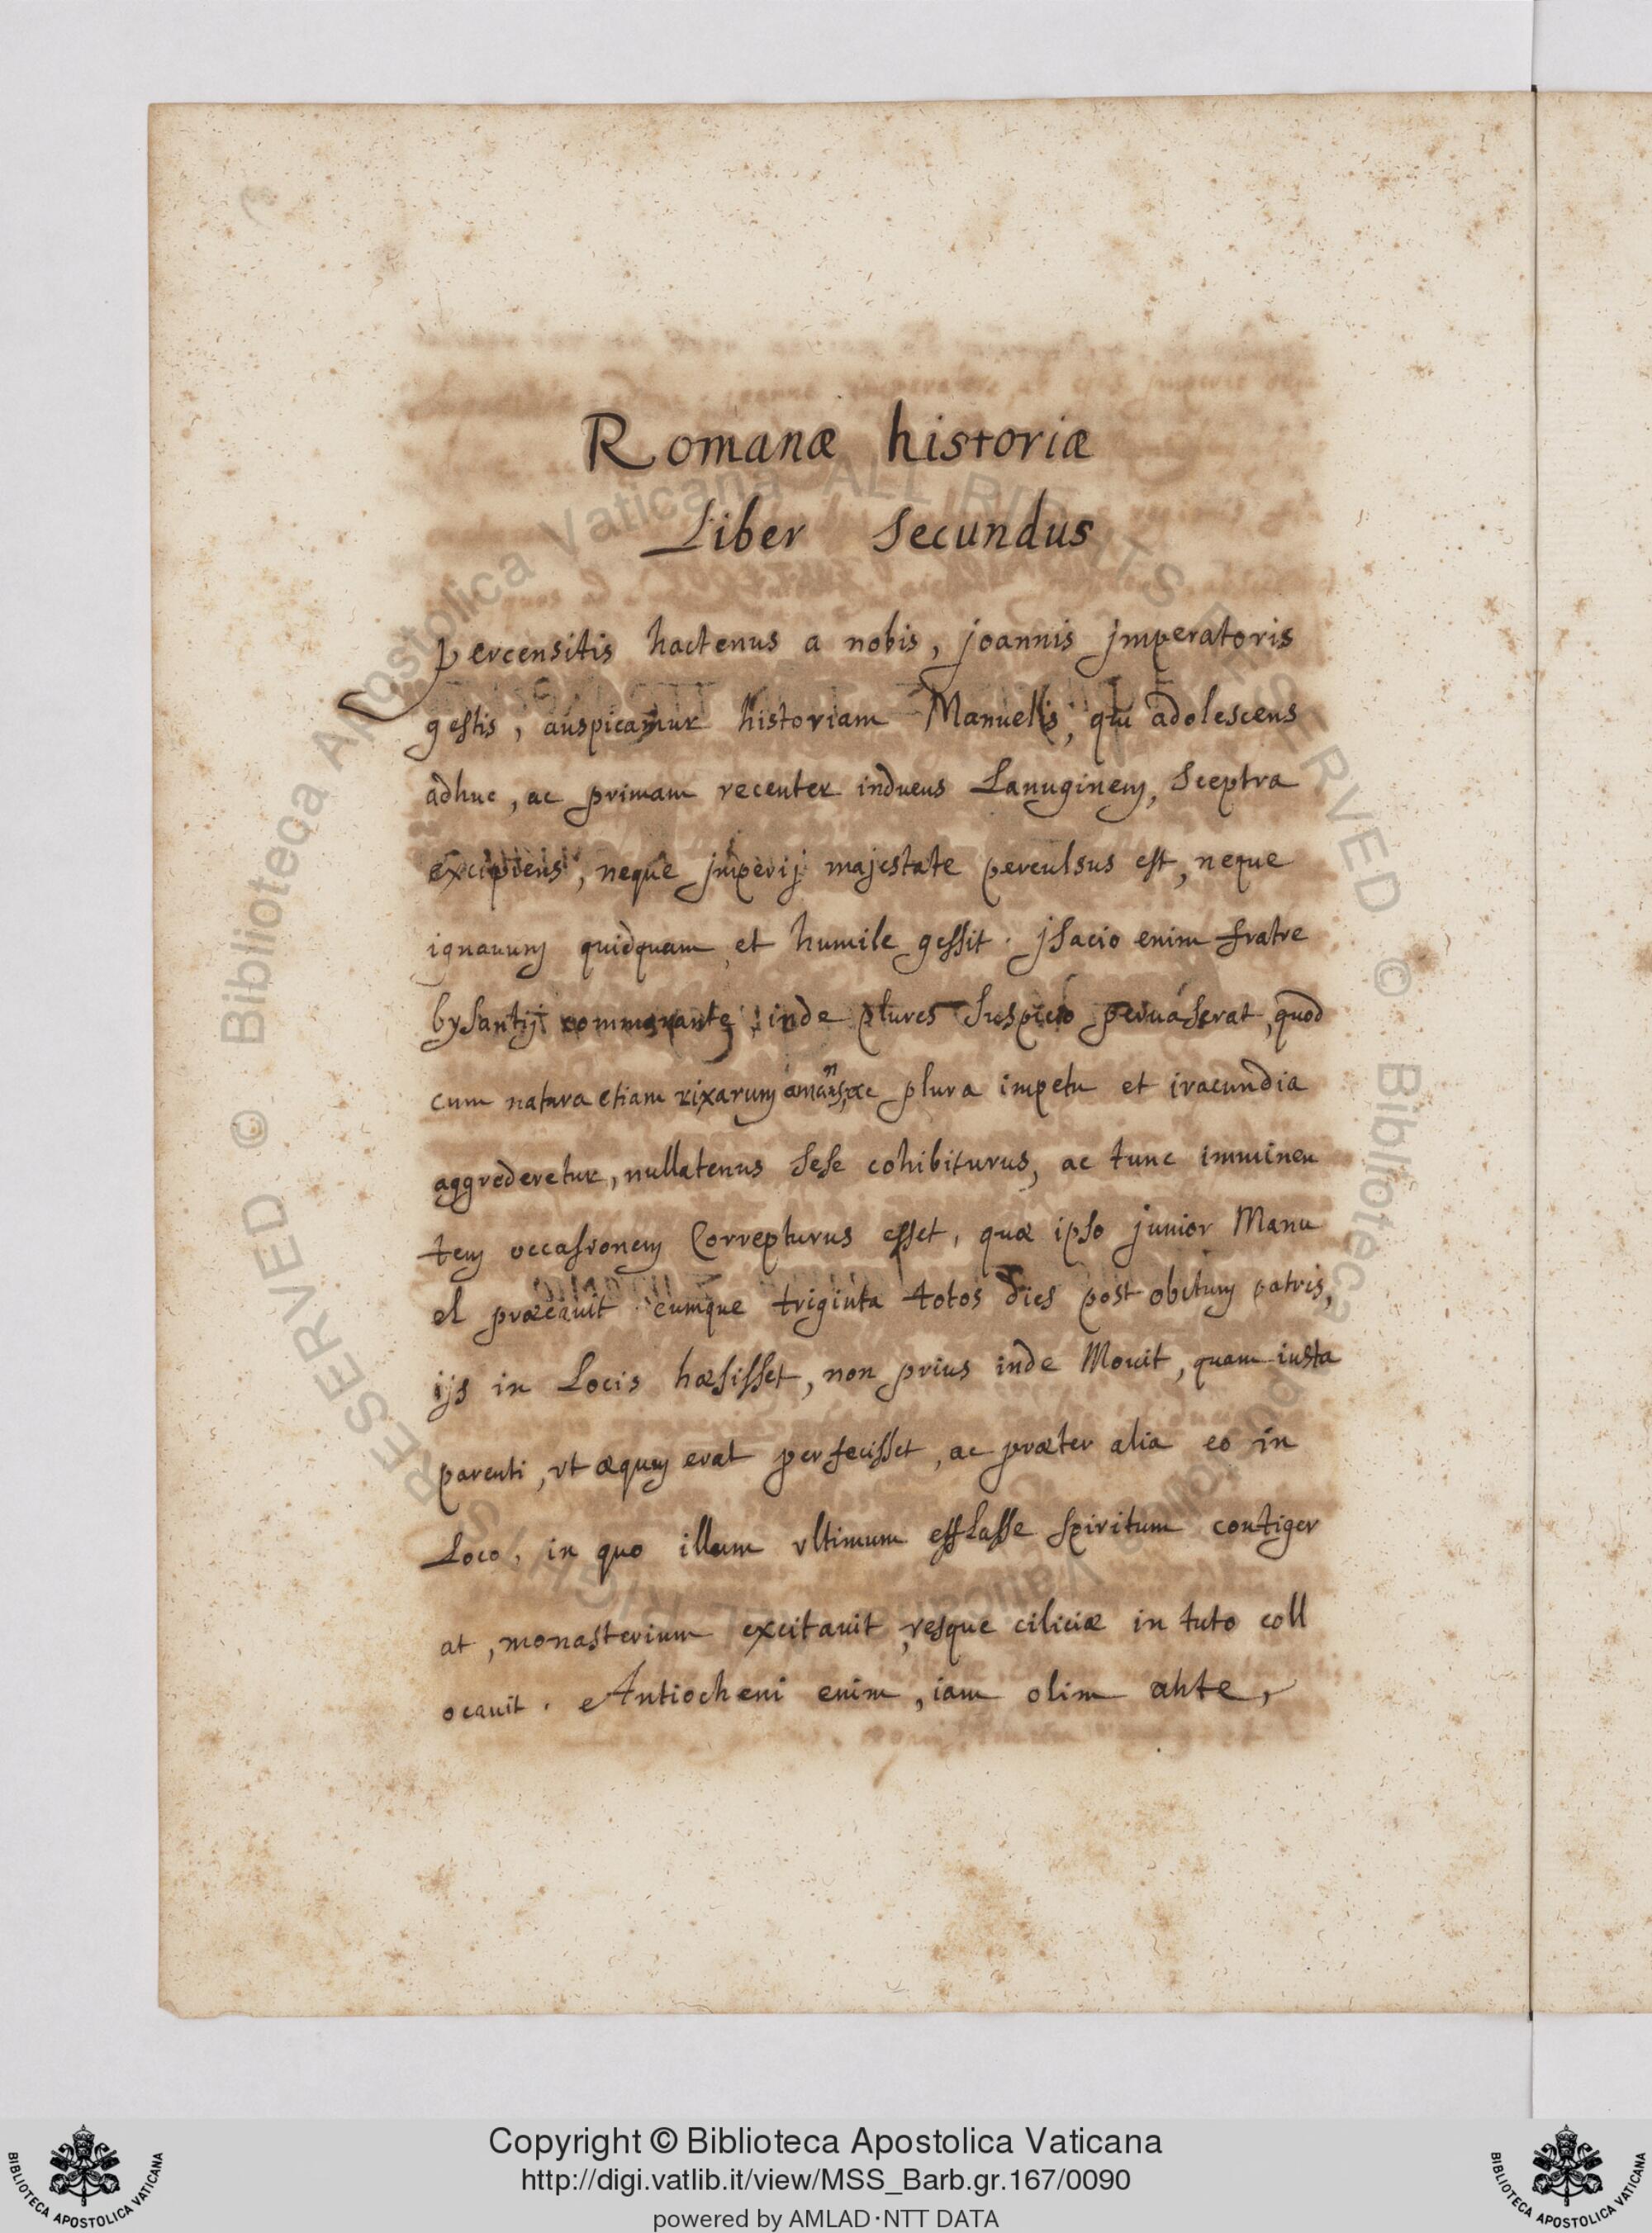 Romanæ historiæ
Liber Secundus
Percensitis hactenus a nobis, joannis jmperatoris
gestis, auspicamur historiam Manuelis, qui adolescens
adhuc, ac primam recenter induens Lanuginem, Sceptra
excipiens, neque jmperij majestate perculsus est, neque
ignauum quidquam et humile gessit. jsacio enim fratre
bysantij commorante inde plures Suspicio peruaserat, quod
cum natura etiam rixarum amans, ac plura impetu et iracundia
aggrederetur, nullatenus sese cohibiturus, ac tunc imminen
tem occasionem Correpturus esset, quæ ipso junior Manu
el præcauit. cumque triginta totos dies post obitum patris,
ijs in Locis hæsisset, non prius inde Mouit, quam iusta
parenti, vt æquum erat perfecisset, ac præter alia eo in
Loco, in quo illum vltimum efflasse spiritum contiger
at, monasterium excitauit, resque ciliciæ in tuto coll
ocauit. Antiocheni enim, iam olim ante,
Copyright © Biblioteca Apostolica Vaticana
http://digi.vatlib.it/view/MSS_Barb.gr.167/0090
powered by AMLAD·NTT DATA
BIBLIOTECA APOSTOLICA VATICANA
BIBLIOTECA APOSTOLICA VATICANA
© Biblioteca Apostolica Vaticana ALL RIGHTS RESERVED © Biblioteca Apostolica Vaticana ALL RIGHTS RESERVED